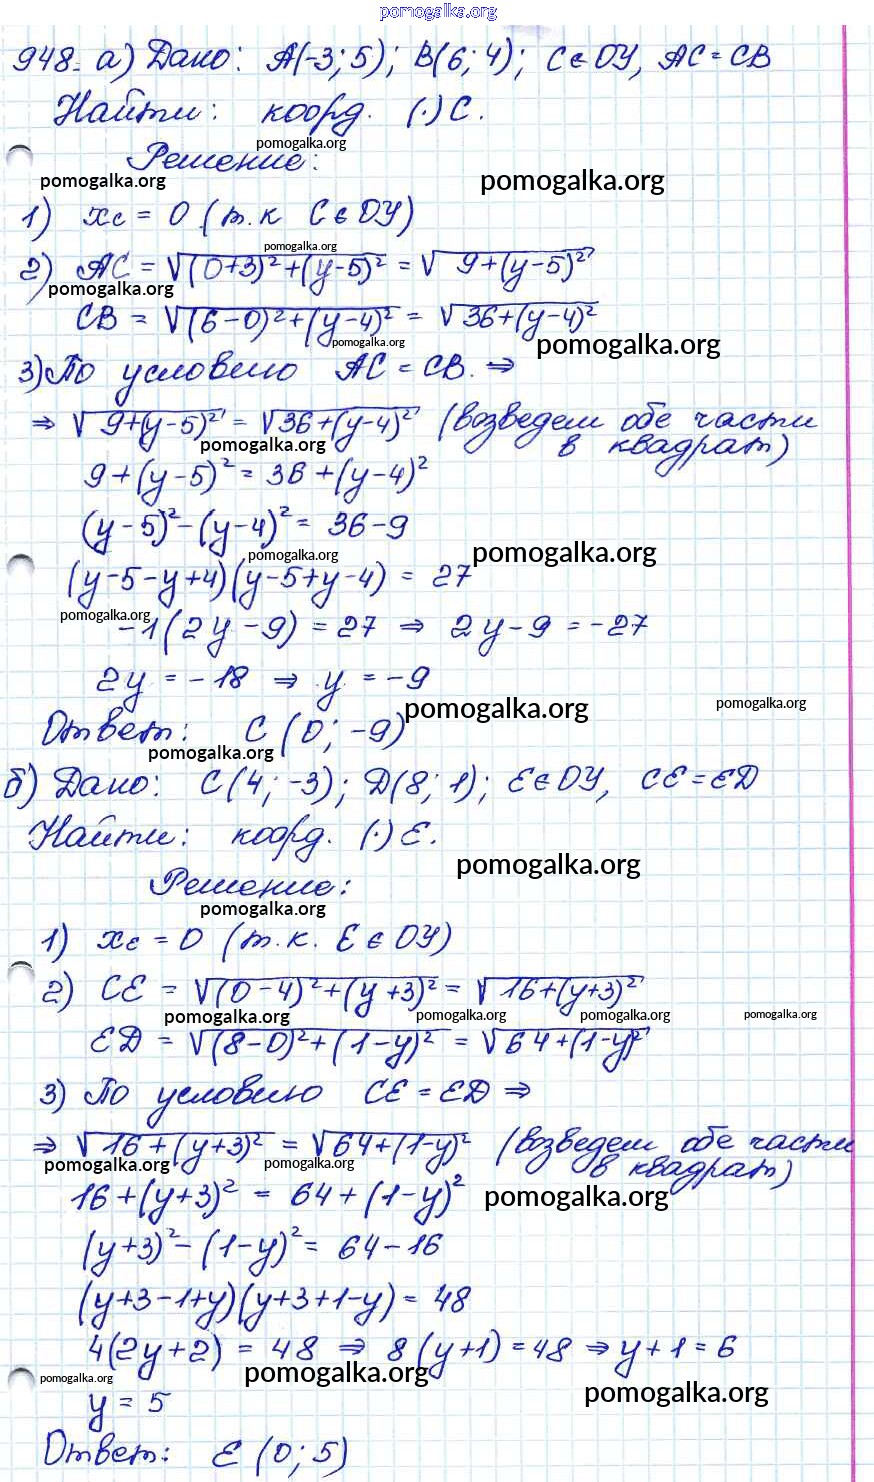 pomogalka.org
948. а) Дано: A(-3; 5); B(6; 4); C∈OY, AC = CB
Найти: коорд. (·) C.
pomogalka.org
Решение:
pomogalka.org pomogalka.org
1) x_C = 0 (т.к C∈OY)
pomogalka.org
2) AC = √((0+3)²+(y-5)²) = √(9+(y-5)²)
pomogalka.org
CB = √((6-0)²+(y-4)²) = √(36+(y-4)²)
pomogalka.org pomogalka.org
3) По условию AC = CB. ⇒
⇒ √(9+(y-5)²) = √(36+(y-4)²) (возведем обе части
в квадрат)
pomogalka.org
9+(y-5)² = 36+(y-4)²
(y-5)²-(y-4)² = 36-9
pomogalka.org pomogalka.org
(y-5-y+4)(y-5+y-4) = 27
pomogalka.org
-1(2y-9) = 27 ⇒ 2y-9 = -27
2y = -18 ⇒ y = -9
pomogalka.org pomogalka.org
Ответ: C (0; -9)
pomogalka.org
б) Дано: C(4; -3); D(8; 1); E∈OY, CE = ED
Найти: коорд. (·) E.
pomogalka.org
Решение:
pomogalka.org
1) x_E = 0 (т.к. E∈OY)
2) CE = √((0-4)²+(y+3)²) = √(16+(y+3)²)
pomogalka.org pomogalka.org pomogalka.org pomogalka.org
ED = √((8-0)²+(1-y)²) = √(64+(1-y)²)
3) По условию CE = ED ⇒
⇒ √(16+(y+3)²) = √(64+(1-y)²) (возведем обе части
в квадрат)
pomogalka.org pomogalka.org
16+(y+3)² = 64+(1-y)²
pomogalka.org
(y+3)²-(1-y)² = 64-16
(y+3-1+y)(y+3+1-y) = 48
4(2y+2) = 48 ⇒ 8(y+1) = 48 ⇒ y+1 = 6
pomogalka.org pomogalka.org pomogalka.org
y = 5
Ответ: E (0; 5)